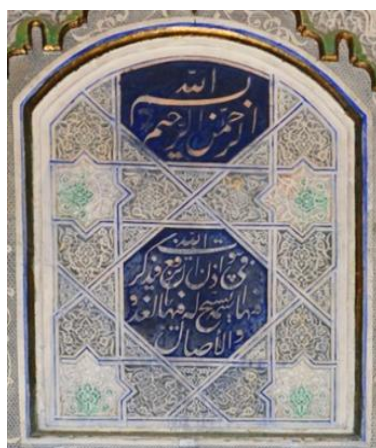 بسم الله
الرحمن الرحيم
في بيوت اذن الله
ان ترفع ويذكر
فيها يسبح له فيها بالغدو
والاصال